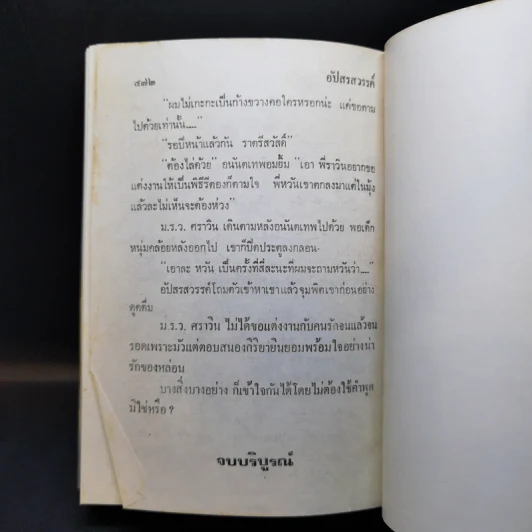 ๔๗๒ อัปสรสวรรค์
"ผมไม่เกะกะเป็นก้างขวางคอใครหรอกน่ะ แค่ขอตาม
ไปด้วยเท่านั้น....."
"รอปีหน้าแล้วกัน ราตรีสวัสดิ์"
"ต้องไล่ด้วย" อนันตเทพอมยิ้ม "เอา พี่ราวินอยากขอ
แต่งงานให้เป็นพิธีรีตองก็ตามใจ พี่หวันเขาตกลงมาแต่ในมุ้ง
แล้วละไม่เห็นจะต้องห่วง"
ม.ร.ว. ศราวิน เดินตามหลังอนันตเทพไปด้วย พอเด็ก
หนุ่มคล้อยหลังออกไป เขาก็ปิดประตูลงกลอน.
"เอาละ หวัน เป็นครั้งที่สี่ละนะที่ผมจะถามหวันว่า....."
อัปสรสวรรค์โถมตัวเข้าหาเขาแล้วจุมพิตเขาก่อนอย่าง
ดูดดื่ม
ม.ร.ว. ศราวิน ไม่ได้ขอแต่งงานกับคนรักจนแล้วจน
รอดเพราะมัวแต่ตอบสนองกิริยายินยอมพร้อมใจอย่างน่า
รักของหล่อน
บางสิ่งบางอย่าง ก็เข้าใจกันได้โดยไม่ต้องใช้คำพูด
มิใช่หรือ ?
จบบริบูรณ์